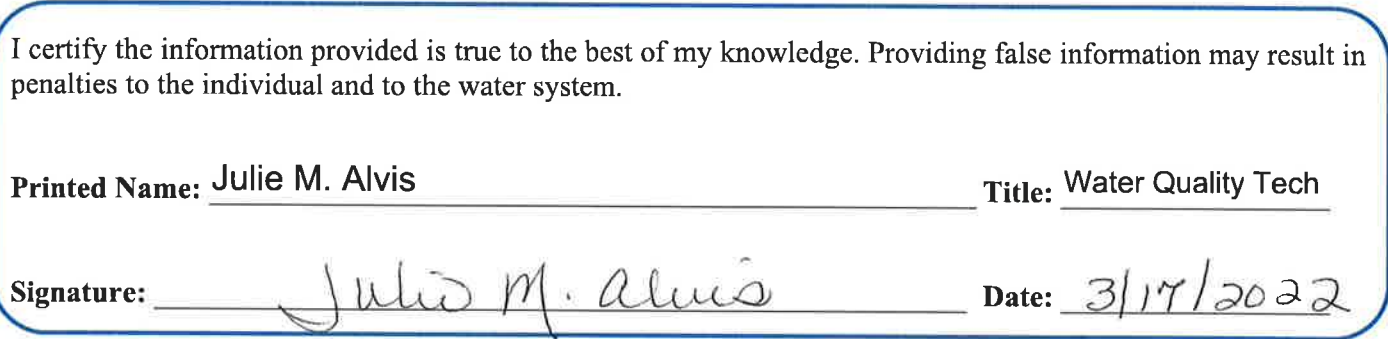 I certify the information provided is true to the best of my knowledge. Providing false information may result in
penalties to the individual and to the water system.
Printed Name: Julie M. Alvis Title: Water Quality Tech
Signature: Julie M. Alvis Date: 3/17/2022